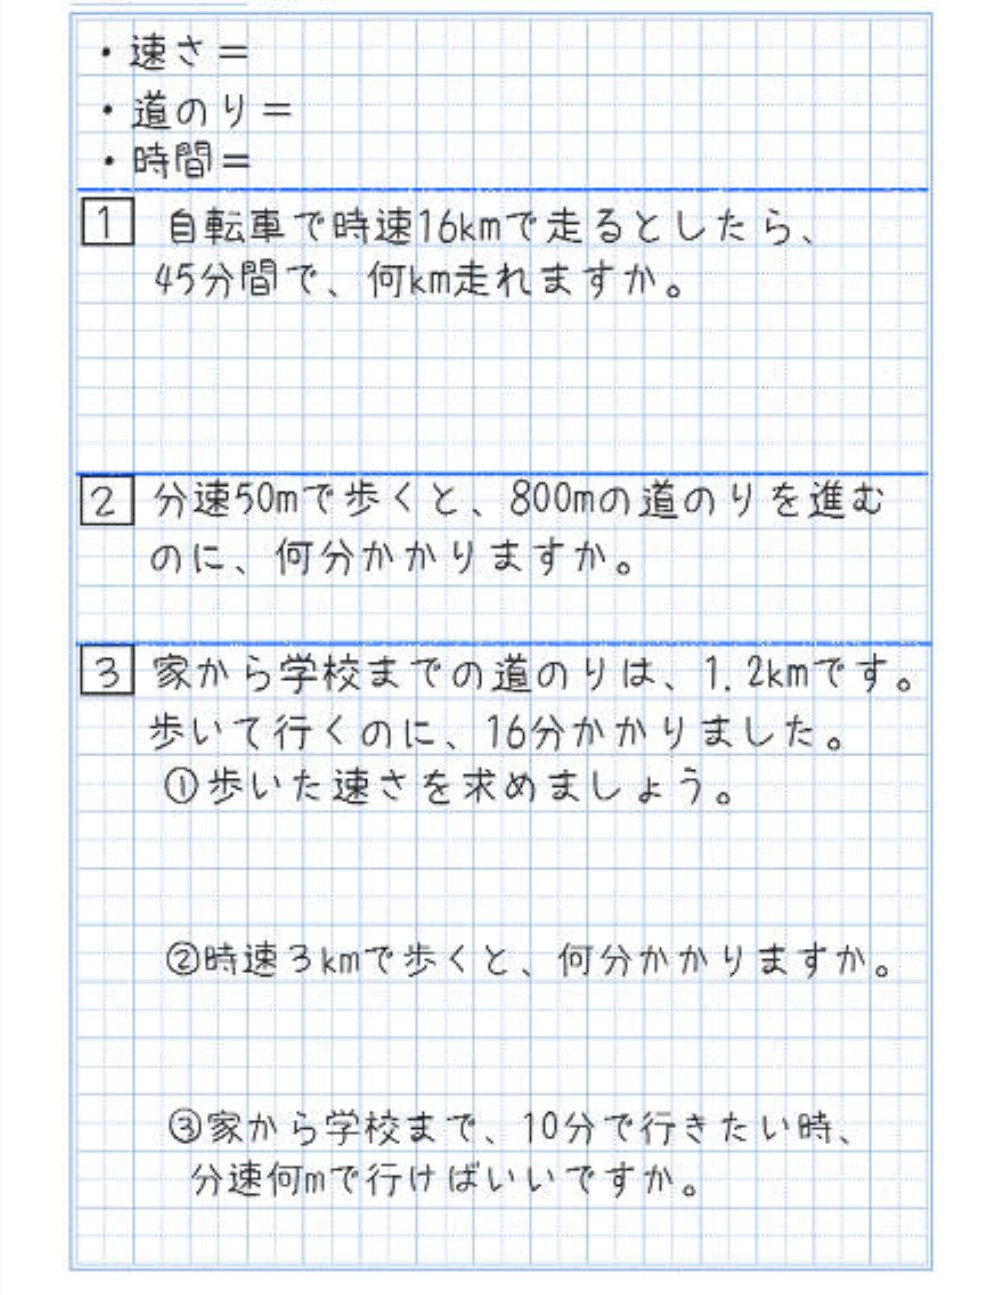 ・速さ＝
・道のり＝
・時間＝
1 自転車で時速16kmで走るとしたら、
45分間で、何km走れますか。
2 分速50mで歩くと、800mの道のりを進む
のに、何分かかりますか。
3 家から学校までの道のりは、1.2kmです。
歩いて行くのに、16分かかりました。
①歩いた速さを求めましょう。
②時速3kmで歩くと、何分かかりますか。
③家から学校まで、10分で行きたい時、
分速何mで行けばいいですか。